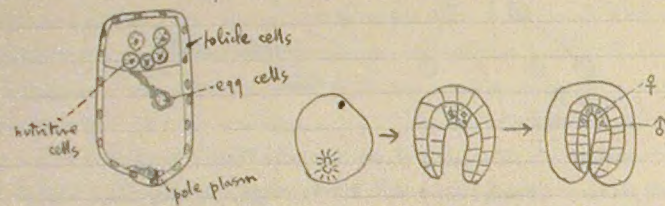 policle cells
egg cells
nutritive
cells
pole plasm
♀
♂